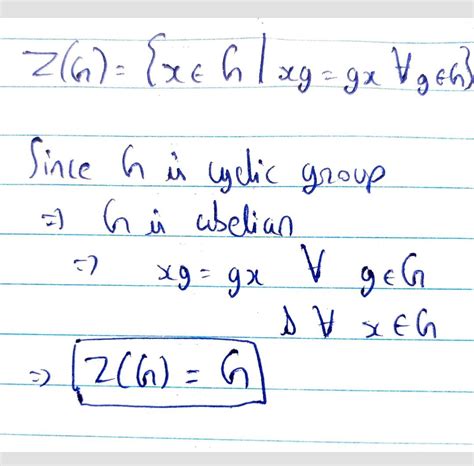 Z(G) = {x ∈ G | xg = gx ∀ g ∈ G}
Since G is cyclic group
⇒ G is abelian
⇒ xg = gx ∀ g ∈ G
& ∀ x ∈ G
⇒ Z(G) = G